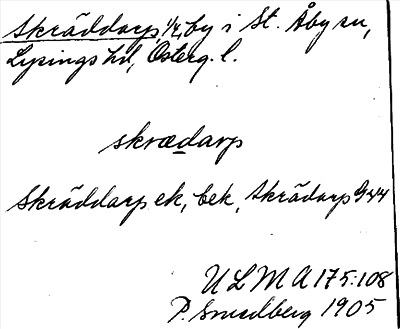 Skräddarp, 1/4, by i St. Åby sn,
Lysings hd, Österg. l.
skrædarp
Skräddarp ek, bek, Skrädarp G44
ULMA 175:108
P. Smedberg 1905